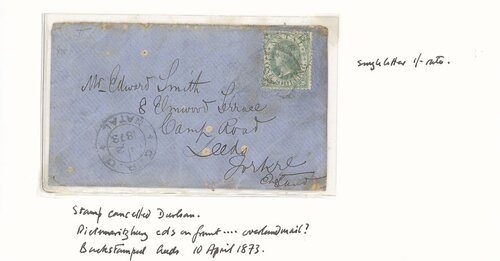 single letter 1/- rate.
Mr Edward Smith
8 Elmwood Terrace
Camp Road
Leeds
Yorkre
England
NATAL
1873
Stamp cancelled Durban.
Pietmaritzburg cds on front .... overland mail?
Backstamped Leeds 10 April 1873.